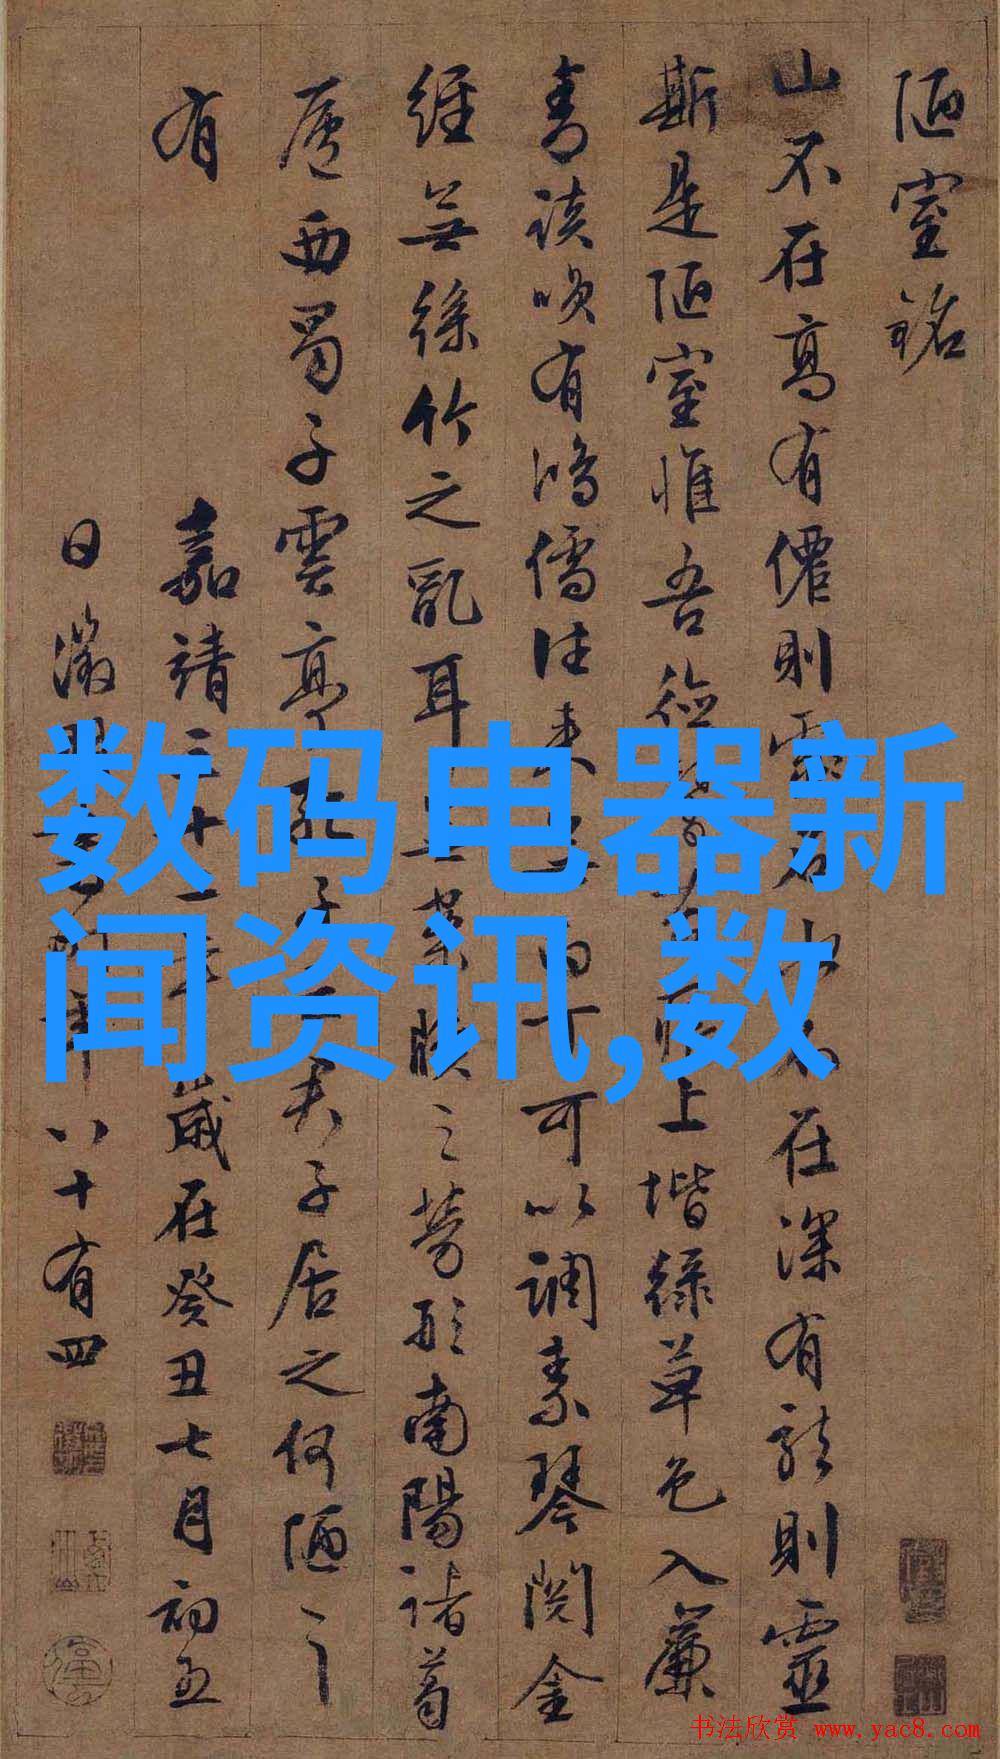 陋室銘
山不在高有僊則靈名不在深有龍則靈
斯是陋室惟吾德上堦緑草色入簾
青談唉有鴻儒往来白丁可以調素琴閲金
経無絲竹之乱耳案牘之勞形南陽諸葛
廬西蜀子雲亭孔子云夫子居之何陋之
有
嘉靖三十二年歲在癸丑七月初五
日徵明時年八十有四
数码电器新
闻资讯,数
书法欣赏 www.yac8.com